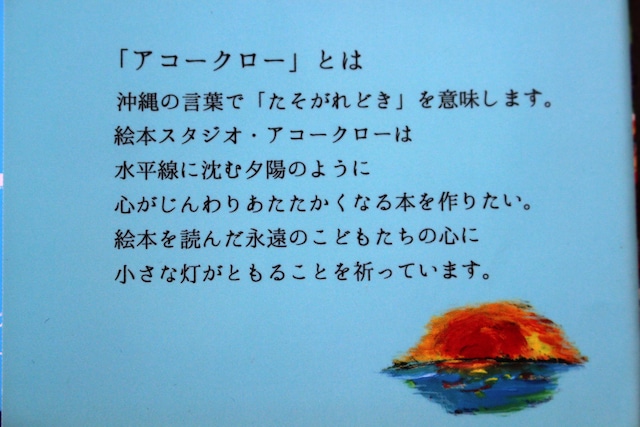 「アコークロー」とは
沖縄の言葉で「たそがれどき」を意味します。
絵本スタジオ・アコークローは
水平線に沈む夕陽のように
心がじんわりあたたかくなる本を作りたい。
絵本を読んだ永遠のこどもたちの心に
小さな灯がともることを祈っています。